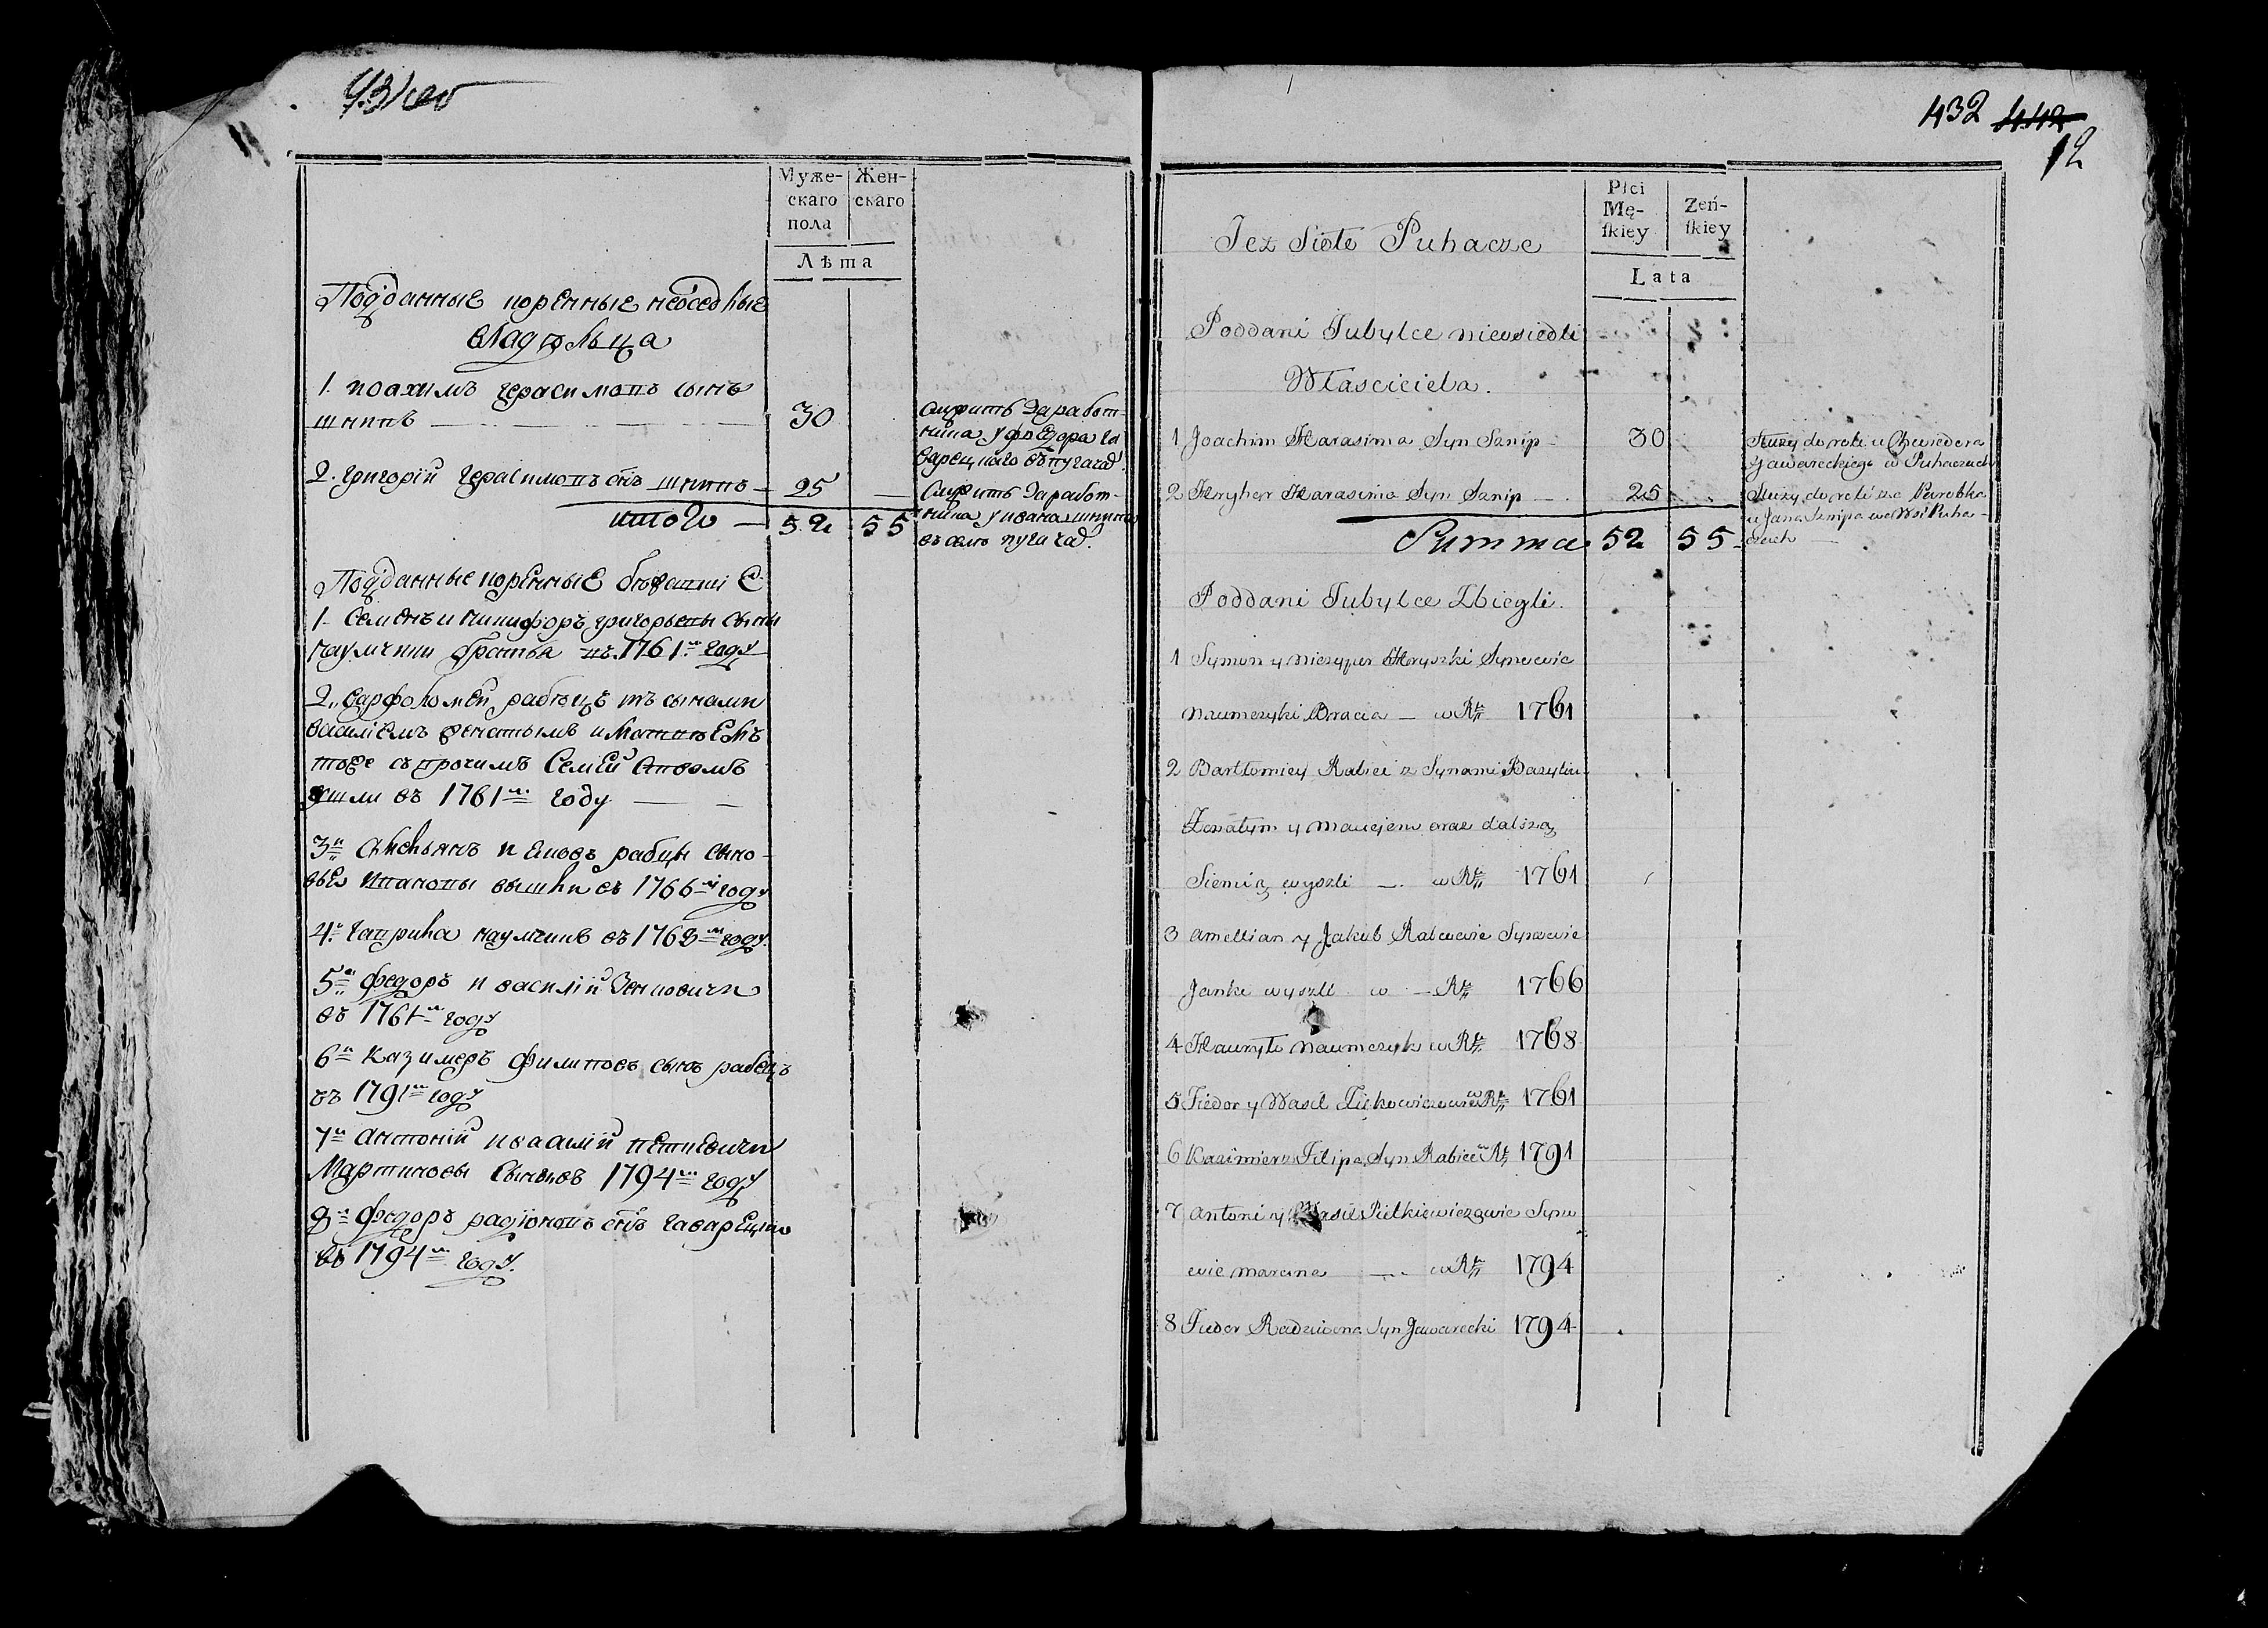 431 об
Муже-
скаго
пола
Жен-
скаго
Лѣта
Подданные коренные неоседлые
владѣльца
1. иоахимъ герасимовъ сынъ
шнипъ
30
служитъ За работ-
ника у федора га
варецкаго въ пугачах
2. григорій герасимовъ снъ шнипъ
25
служитъ За работ-
ника у ивана шнипа
въ селѣ пугачах.
итого
52
55
Подданные коренные бѣжавшіе
1. Семенъ и никифоръ григорьевы сыны
наумчики братья въ 1761м году
2. варфоломей рабецъ съ сынами
василіемъ женатымъ и матвѣемъ
тоже съ прочимъ Семействомъ
ушли въ 1761м году
3и Емельянъ и яковъ рабцы сыно-
вья ивановы вышли въ 1766м году
4. гаврила наумчикъ въ 1768м году
5и федоръ и василій
въ 1761м году
6и Казимеръ филиповъ сынъ рабецъ
въ 1791м году
7и антоній и василій петкевичи
Мартиновы Сыны въ 1794м году
8и федоръ радіоновъ снъ гаварецкій
въ 1794м году.
432 442
12
Płci
Mę-
skiey
Zeń-
skiey
Lata
Jez Sioło Puhacze
Poddani Tubylce nieosiedli
Własciciela.
1 Joachim Harasima Syn Sznip
30
Służy do roli u Chwiedora
Gawareckiego w Puhaczach
2 Hryhor Harasima Syn Sznip
25
Służy do roli za Parobka
u Jana Sznipa we Wsi Puha-
czach
Summa
52
55
Poddani Tubylce Zbiegli.
1 Symon y Niczypor Hryszki Synowie
Naumczyki Bracia w Rk 1761
2 Bartłomiey Rabiec z Synami Bazylim
Żonatym y Maciejem oraz dalszą
Siemią wyszli w Rk 1761
3 Amellian y Jakub Rabcowie Synowie
Janki wyszli w Rk 1766
4 Hawryło Naumczyk w Rk 1768
5 Fiedor y Wasil w Rk 1761
6 Kazimierz Filipa Syn Rabiec w Rk 1791
7 Antoni y Wasil Pietkiewiczowie Syno
wie Marcina w Rk 1794
8 Fiedor Radziwona Syn Gawarecki 1794